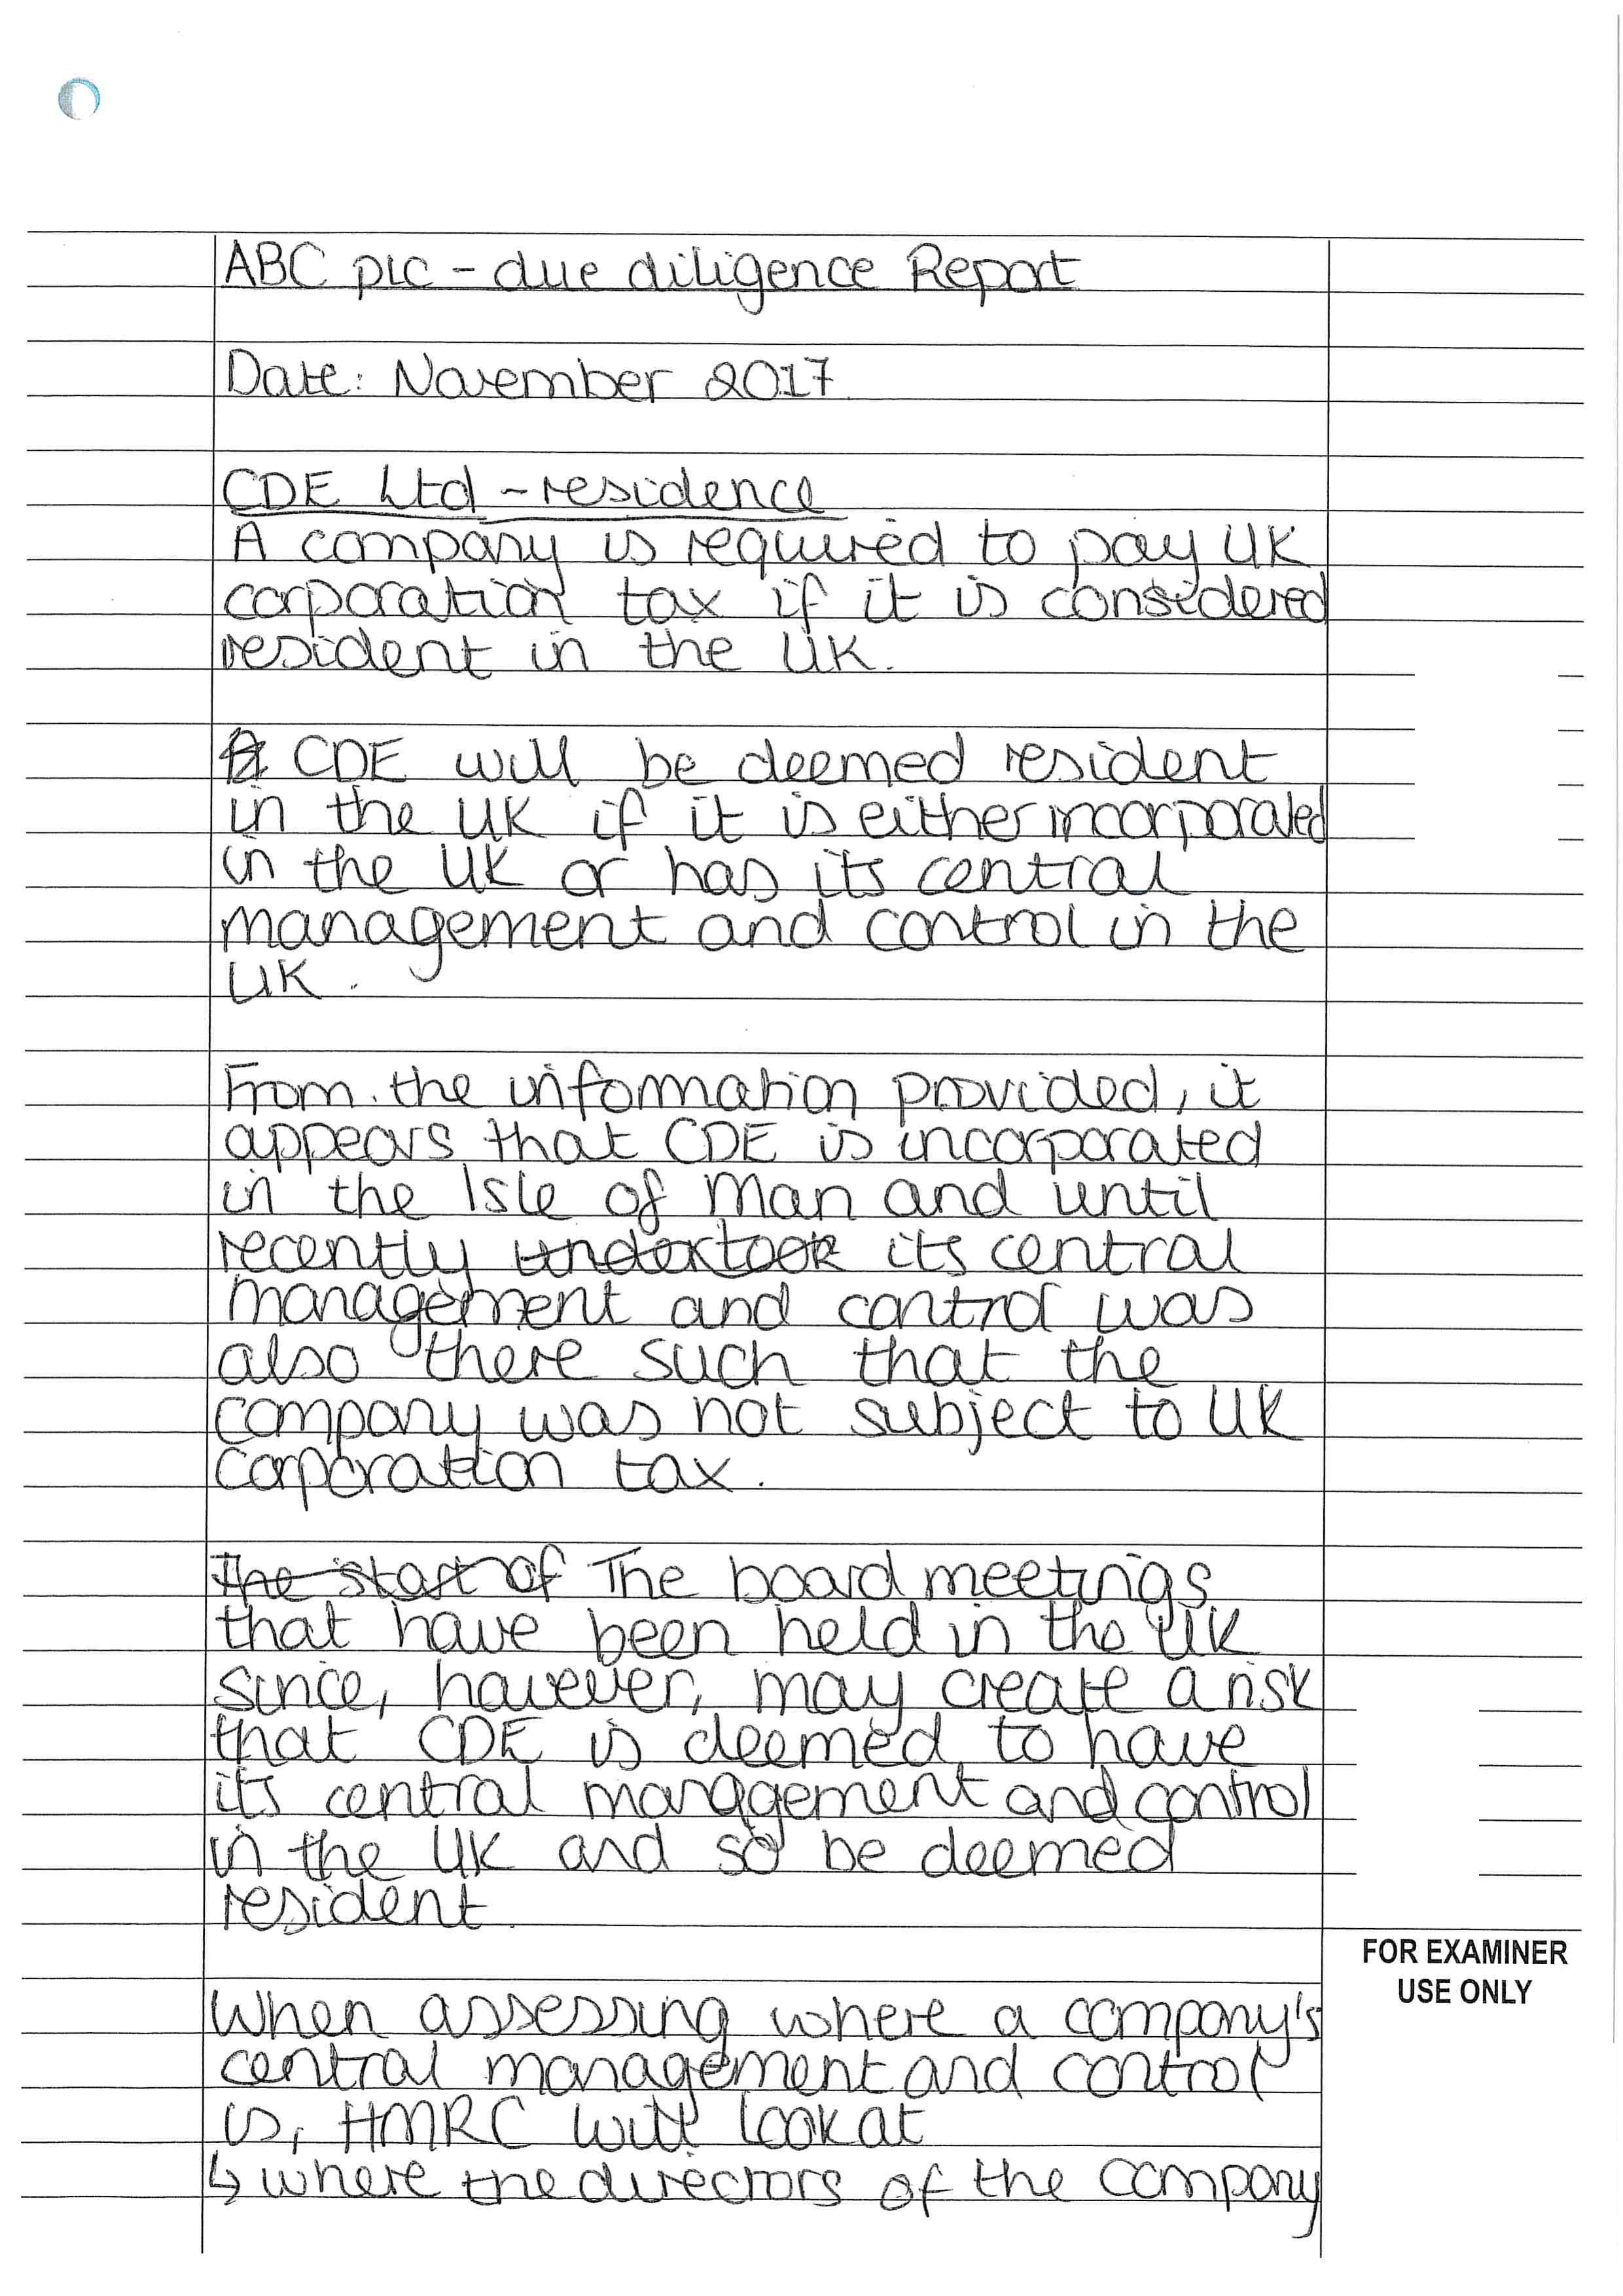 ABC plc - due diligence Report
Date: November 2017
CDE Ltd - residence
A company is required to pay UK
corporation tax if it is considered
resident in the UK.
CDE will be deemed resident
in the UK if it is either incorporated
in the UK or has its central
management and control in the
UK.
From the information provided, it
appears that CDE is incorporated
in the Isle of Man and until
recently undertook its central
management and control was
also there such that the
company was not subject to UK
Corporation tax.
The start of The board meetings
that have been held in the UK
since, however, may create a risk
that CDE is deemed to have
its central management and control
in the UK and so be deemed
resident.
FOR EXAMINER
USE ONLY
When assessing where a company's
central management and control
is, HMRC will look at
↳ where the directors of the company